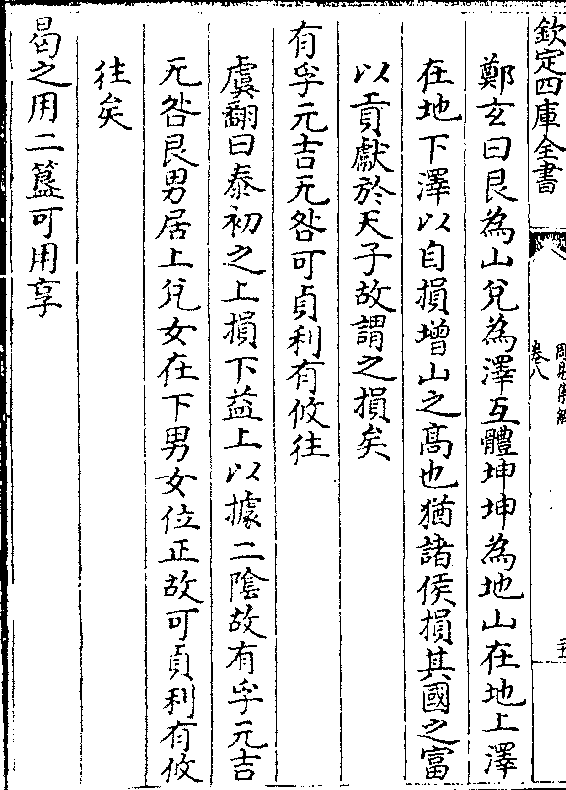 欽定四庫全書
卷八
鄭玄曰艮為山兌為澤互體坤坤為地山在地上澤
在地下澤以自損增山之髙也猶諸侯損其國之富
以貢獻於天子故謂之損矣
有孚元吉无咎可貞利有攸往
虞翻曰泰初之上損下益上以據二陰故有孚元吉
无咎艮男居上兌女在下男女位正故可貞利有攸
往矣
曷之用二簋可用享